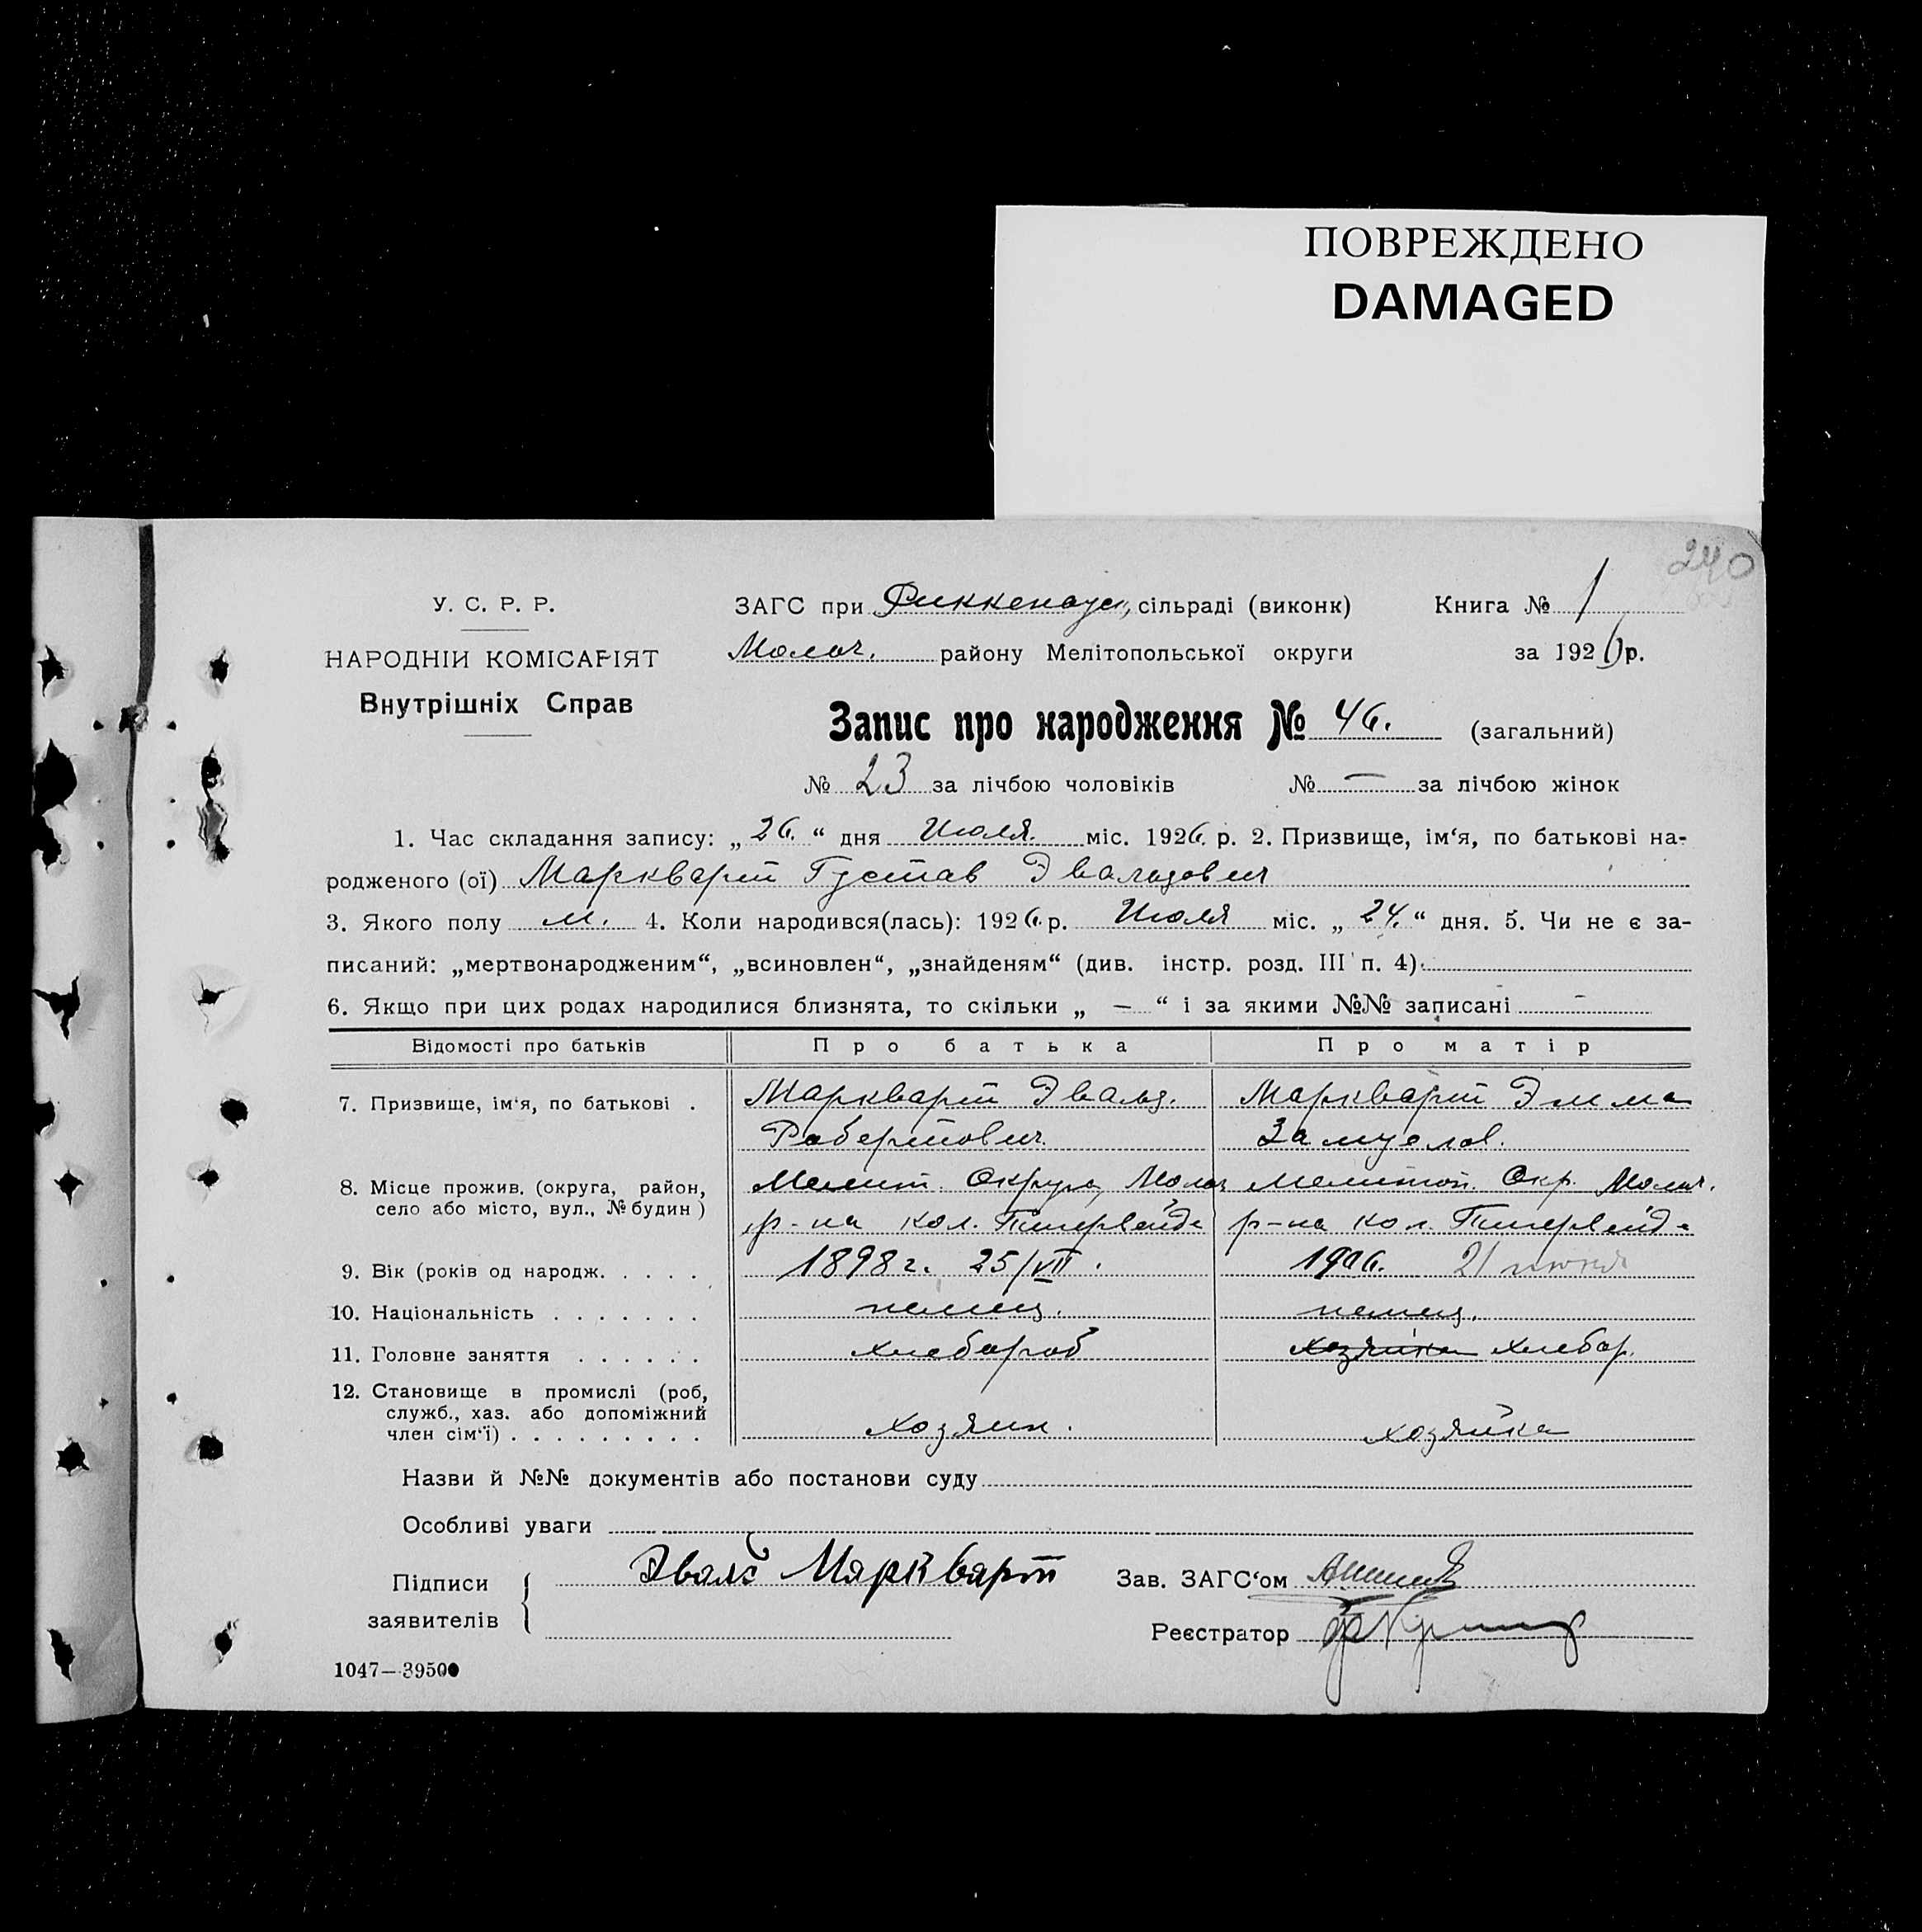 ПОВРЕЖДЕНО
DAMAGED
240
У. С. Р. Р.
НАРОДНІИ КОМІСАРІЯТ
Внутрішніх Справ
ЗАГС при Риккенауск, сільраді (виконк)
Книга № 1
Молоч. району Мелітопольської округи
за 1926 р.
Запис про народження № 46. (загальний)
№ 23 за лічбою чоловіків № — за лічбою жінок
1. Час складання запису: „ 26. “ дня Июля. міс. 1926. р. 2. Призвище, ім‘я, по батькові на-
родженого (ої) Маркварт Густав Эвальдович
3. Якого полу м. 4. Коли народився(лась): 1926. р. Июля міс. „ 24. “ дня. 5. Чи не є за-
писаний: „мертвонародженим“, „всиновлен“, „знайденям“ (див. інстр. розд. III п. 4).
6. Якщо при цих родах народилися близнята, то скільки „ — “ і за якими №№ записані —
Відомості про батьків Про батька Про матір
7. Призвище, ім‘я, по батькові . Маркварт Эвальд. Маркварт Эмма
Робертович. Замуелов.
8. Місце прожив. (округа, район, Мелит. Округа, Молоч Мелитоп. Окр. Молоч.
село або місто, вул., № будин) р-на кол. Тигервейде р-на кол. Тигервейде
9. Вік (років од народж. . . . . 1898 г. 25/VII. 1906. 21 июня
10. Національність . . . . . . . немец. немец.
11. Головне заняття . . . . . . хлебороб хозяйка хлебор.
12. Становище в промислі (роб,
служб., хаз. або допоміжний
член сім‘ї) . . . . . . . . . хозяин. хозяйка
Назви й №№ документів або постанови суду
Особливі уваги
Підписи
заявителів
Эвалд Маркварт
Зав. ЗАГС‘ом
Реєстратор
1047—39500